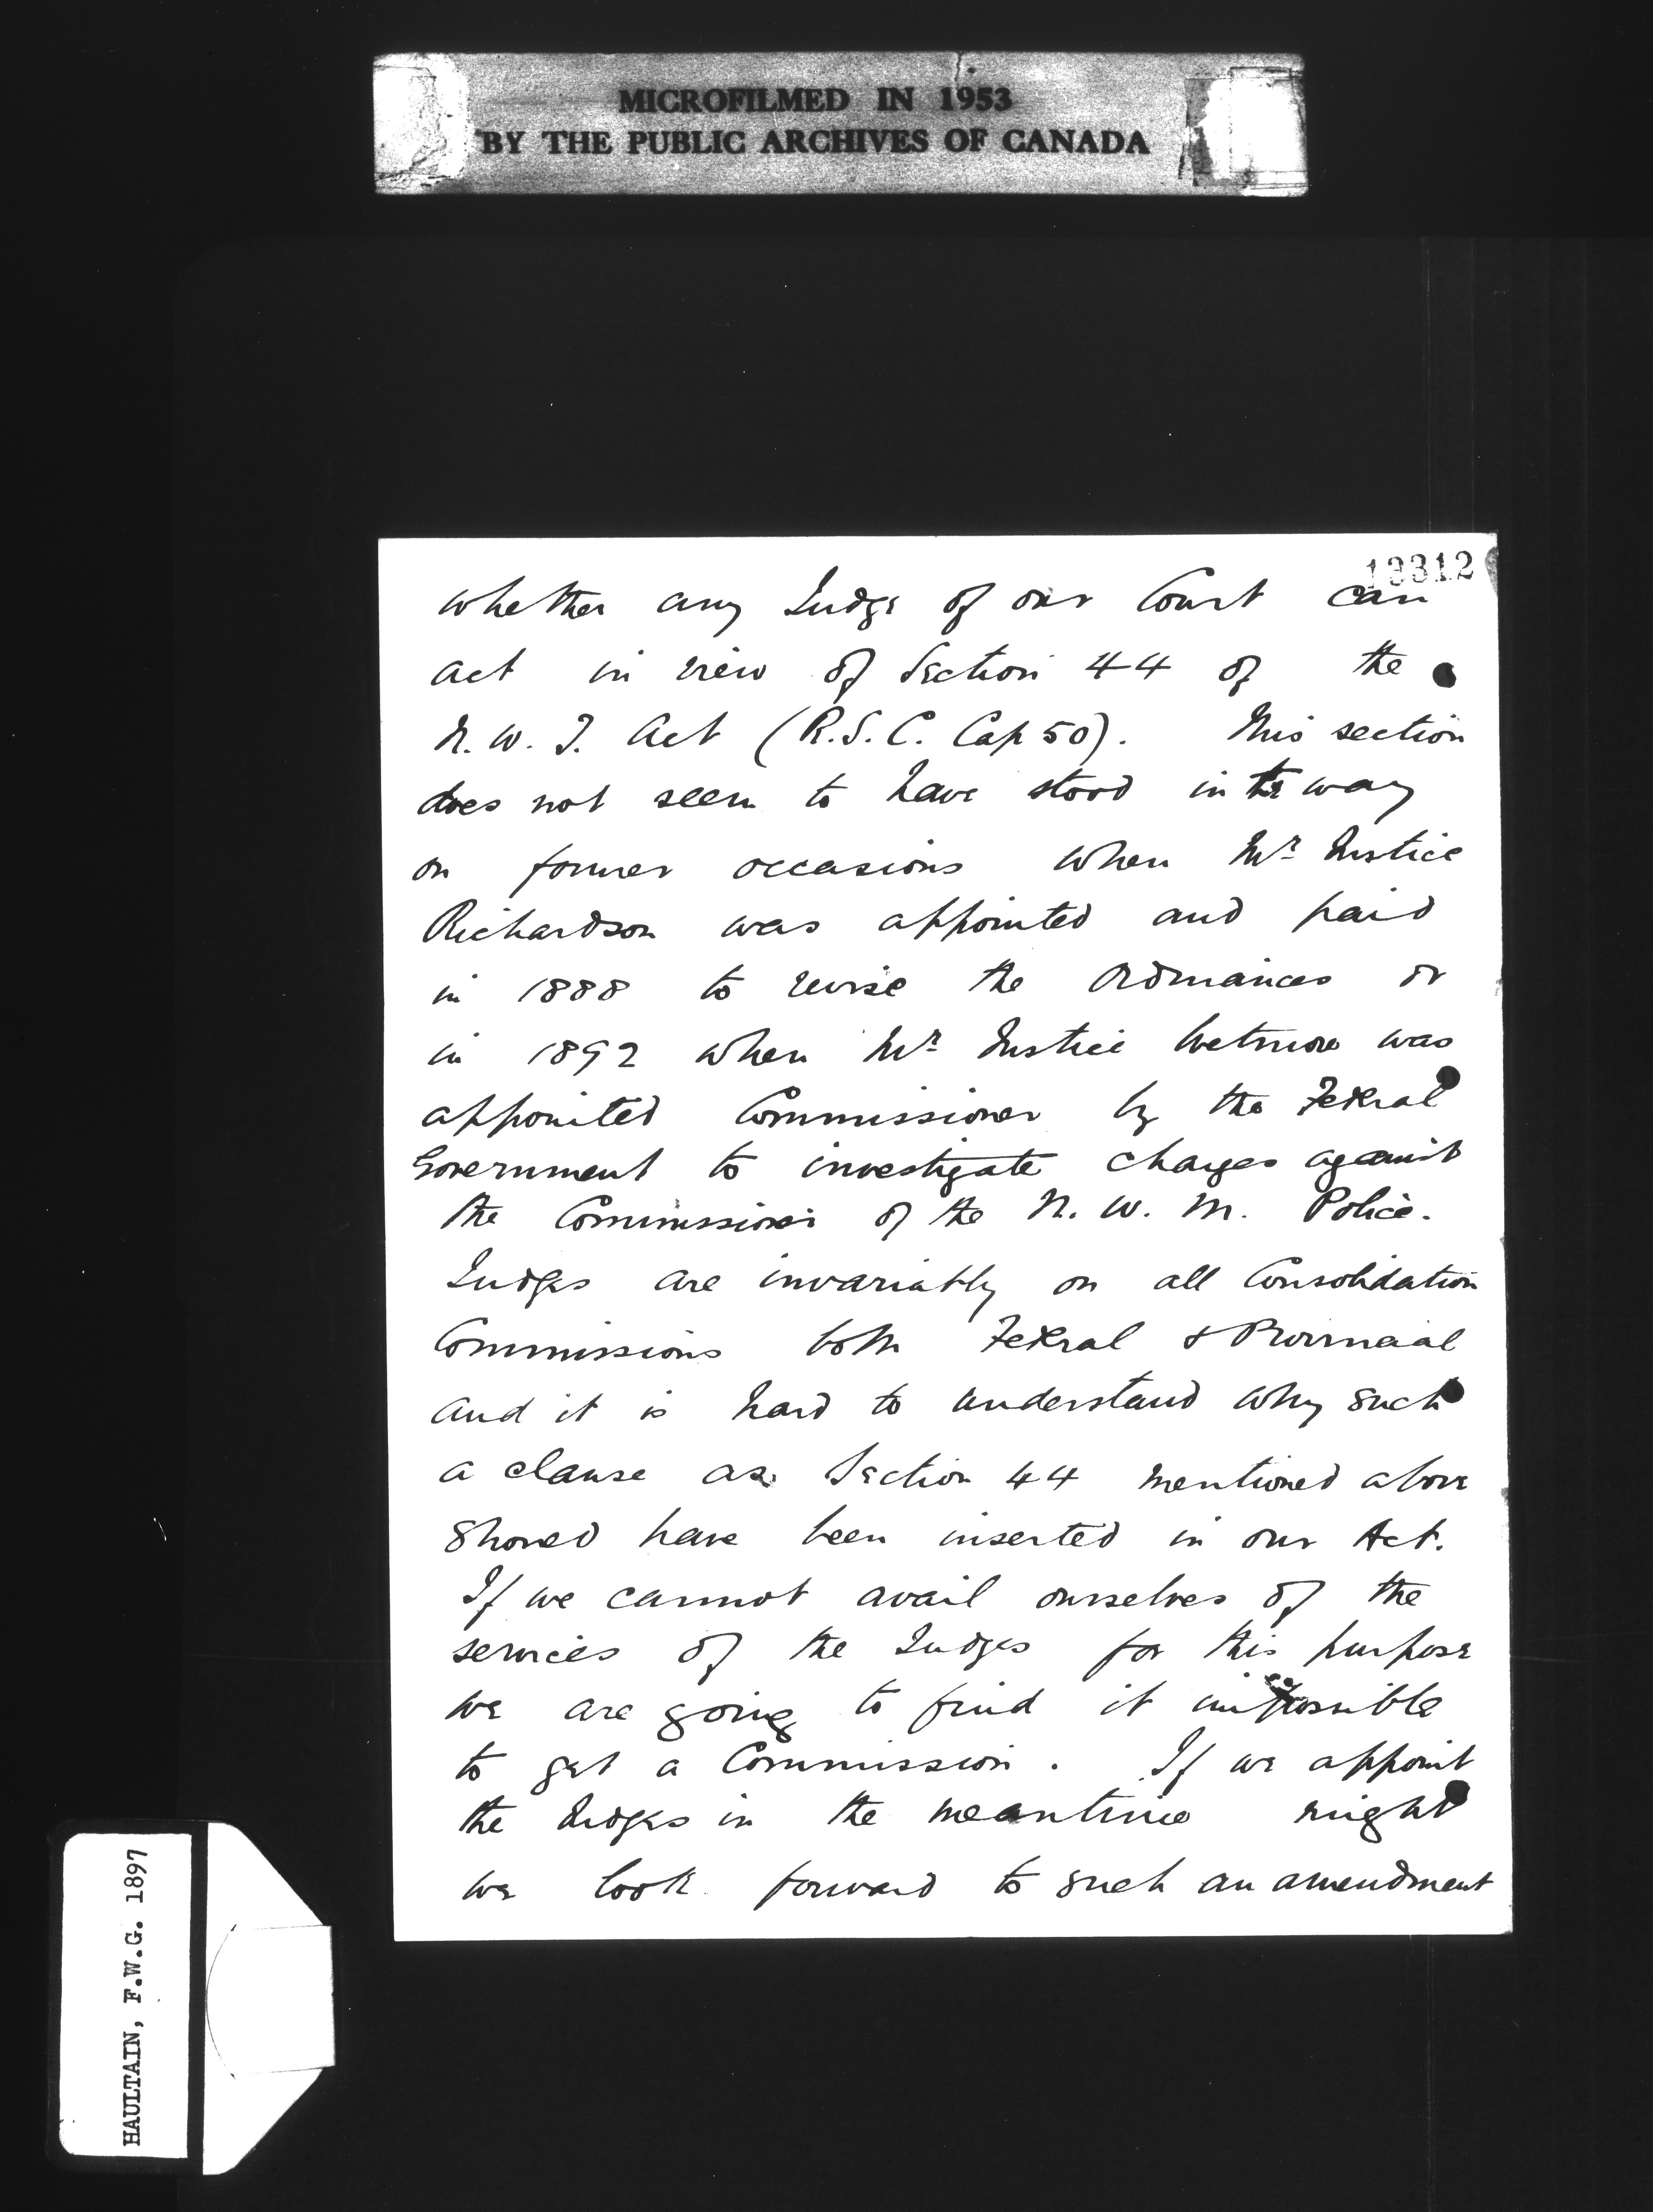 MICROFILMED IN 1953
BY THE PUBLIC ARCHIVES OF CANADA
13312
whether any Judge of our Court can
act in view of Section 44 of the
N. W. T. Act (R.S.C. Cap 50). This section
does not seem to have stood in the way
on former occasions when Mr Justice
Richardson was appointed and paid
in 1888 to revise the Ordinances or
in 1892 when Mr Justice Wetmore was
appointed Commissioner by the Federal
Government to investigate charges against
the Commissioner of the N. W. M. Police.
Judges are invariably on all Consolidation
Commissions both Federal & Provincial
and it is hard to understand why such
a clause as Section 44 mentioned above
should have been inserted in our Act.
If we cannot avail ourselves of the
services of the Judges for this purpose
we are going to find it impossible
to get a Commission. If we appoint
the Judges in the meantime might
we look forward to such an amendment
HAULTAIN, F.W.G. 1897